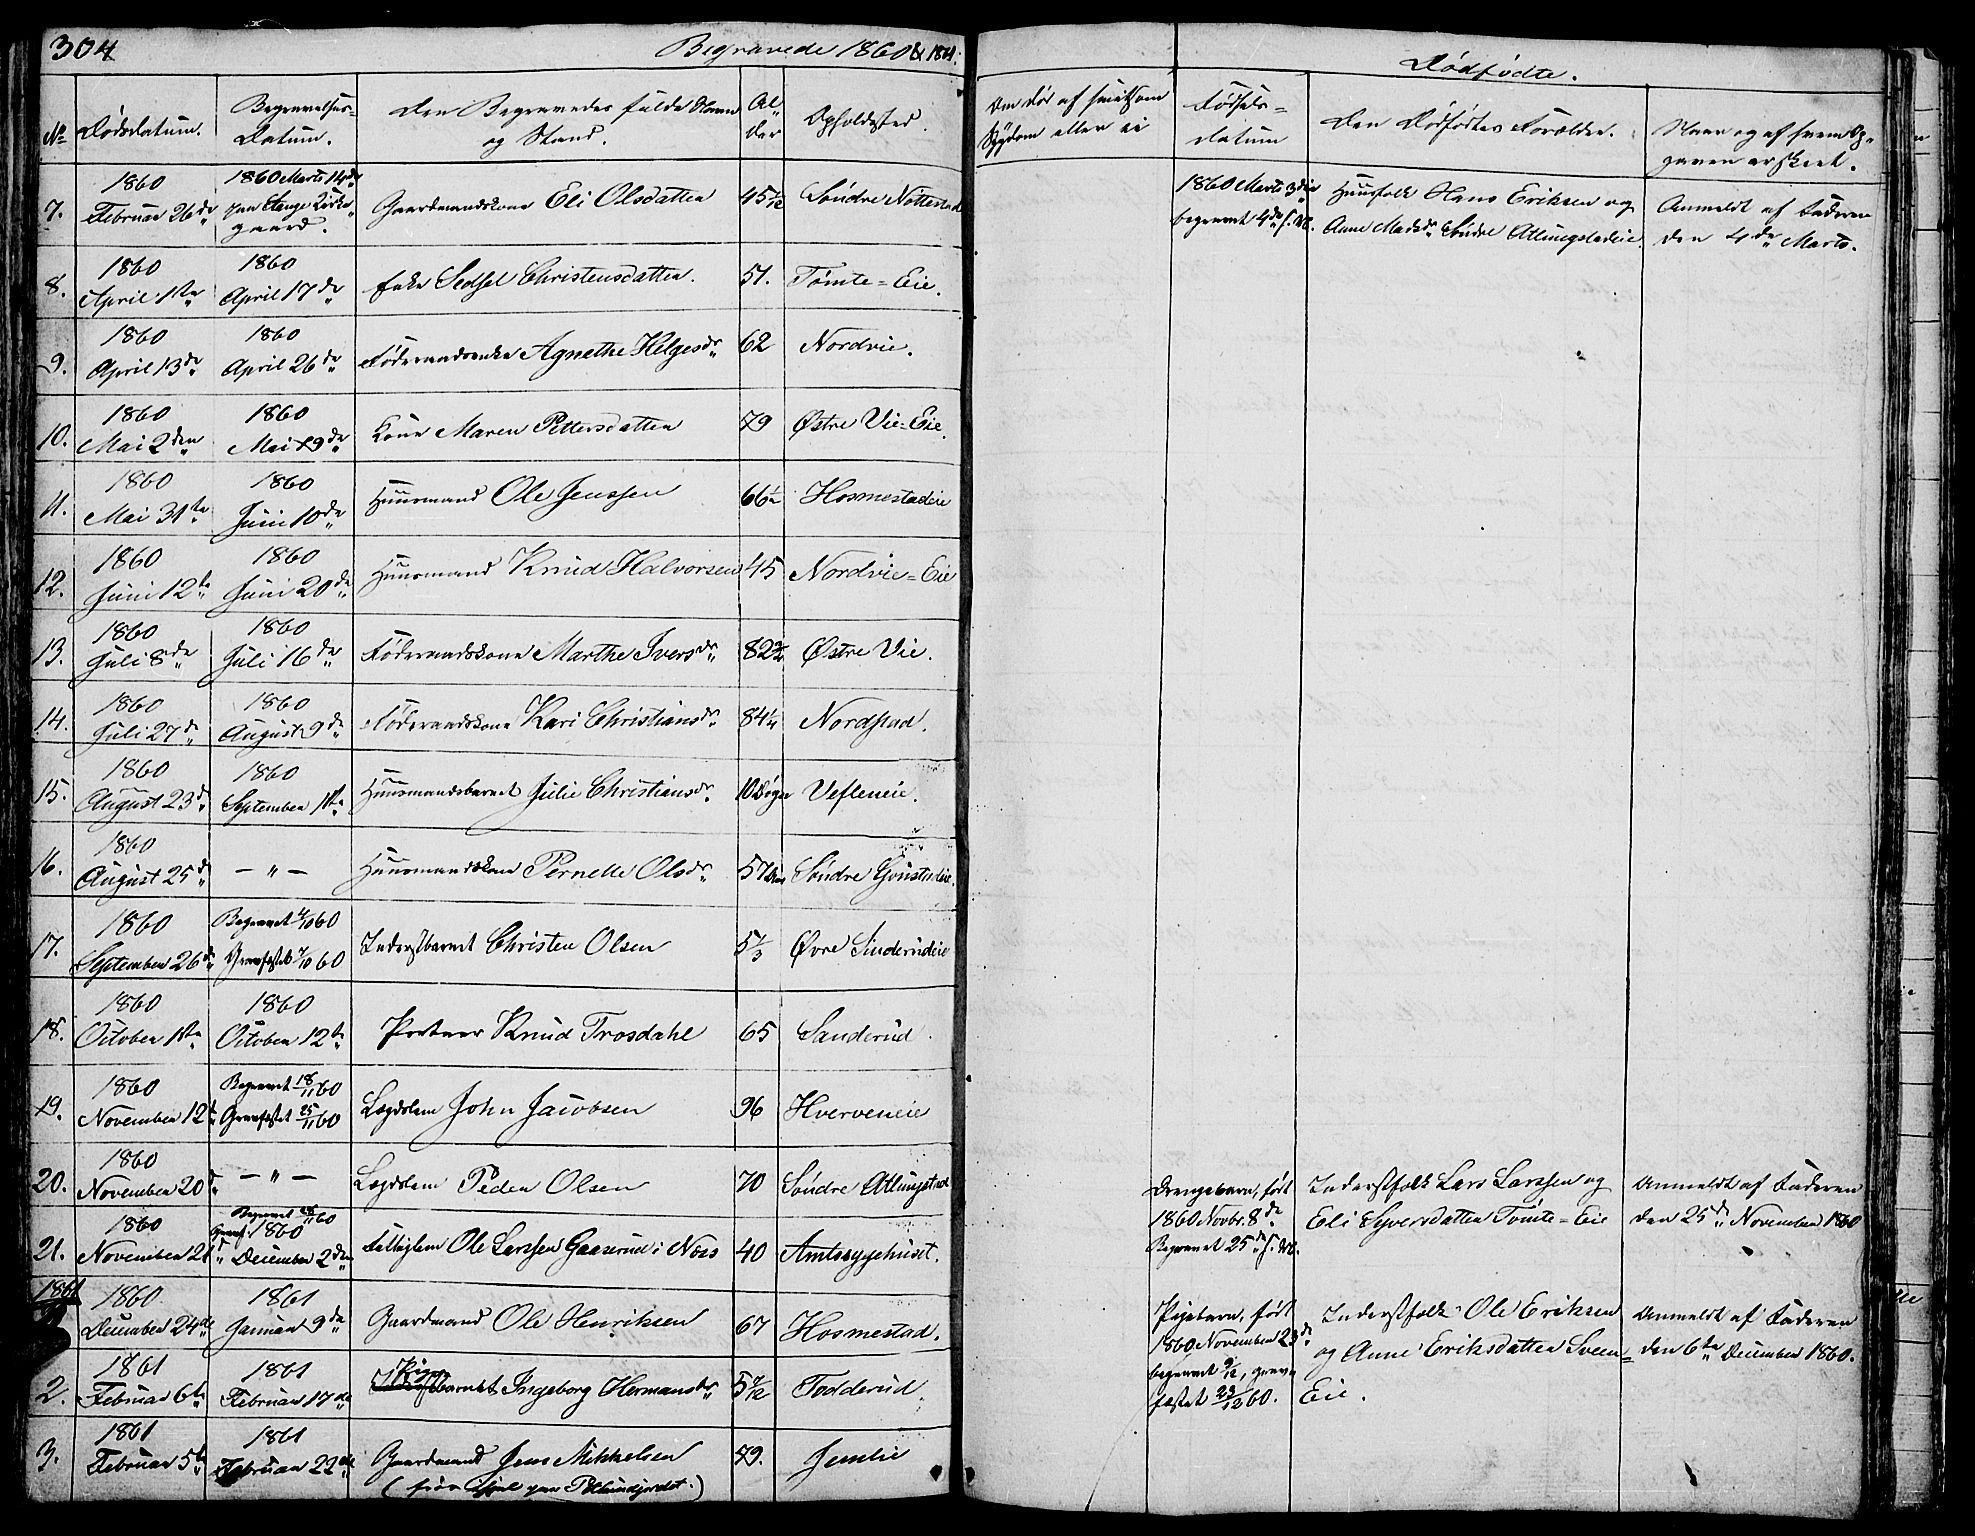 304
Begravede 1860 & 1861.
No
Dødsdatum.
Begravelses-
Datum.
Den Begravedes fulde Navn
og Stand.
Al-
der
Opholdssted.
7.
1860
Februar 26de
1860 Marts 14de
paa Stange Kirke-
gaard.
Gaardmandskone Eli Olsdatter
45
Søndre Nøttestad
8.
1860
April 1ste
1860
April 17de
Enke Sedsel Christensdatter.
51.
Tomte-Eie.
9.
1860
April 13de
1860
April 26de
Føderaadsenke Agnethe Helgesdr
62
Nordvie.
10.
1860
Mai 2den
1860
Mai 19de
Kone Maren Pettersdatter
79
Østre Vie-Eie.
11.
1860
Mai 31te
1860
Juni 10de
Huusmand Ole Jenssen
66½
Hosmestadeie
12.
1860
Juni 12te
1860
Juni 20de
Huusmand Knud Halvorsen
45
Nordvie-Eie
13.
1860
Juli 8de
1860
Juli 16de
Føderaadskone Marthe Iversdr
82
Østre Vie.
14.
1860
Juli 27de
1860
August 9de
Føderaadskone Kari Christiansdr
84¼
Nordstad.
15.
1860
August 23de
1860
September 1ste
Huusmandsbarnet Julie Christiansdr
10 Døgn
Vefleneie.
16.
1860
August 25de
— „ —
Huusmandskone Pernelle Olsdr
57
Søndre
17.
1860
September 26de
Begravet /10 60
Gravfæstet 7/10 60
Inderstbarnet Christen Olsen
5⅓
Øvre Sinderudeie
18.
1860
October 1ste
1860
October 12te
Portner Knud Trosdahl
65
Sanderud.
19.
1860
November 12te
Begravet 18/11 60
Gravfæstet 25/11 60
Lægdslem John Jacobsen
96
Hverveneie
20.
1860
November 20de
— „ —
Lægdslem Peder Olsen
70
Søndre Atlungstad
21.
1860
November 21
Begravet 28/11 60
Gravf. 1860
December 2den
Fattiglem Ole Larssen Gaaserud i Næs
40
Amtssygehuset.
1861
1860
December 24de
1861
Januar 9de
Gaardmand Ole Henriksen
67
Hosmestad.
2.
1861
Februar 6te
1861
Februar 17de
Pige
Ingeborg Hermansdr
5
Todderud.
3.
1861
Februar 5te
1861
Februar 22de
Gaardmand Jens Mikkelsen
79.
Jemlie
Om død af smitsom
Sygdom eller ei
Dødfødte.
Fødsels-
datum
Den Dødfødtes Forældre.
Naar og af hvem Op-
gaven er skeet.
1860 Marts 3die
begravet 4de s. M.
Huusfolk Hans Eriksen og
Anne Madsdr Søndre Atlungstadeie.
Anmeldt af Faderen
den 4de Marts.
Drengebarn, født
1860 Novbr. 8de
Begravet 25de s. M.
Inderstfolk Lars Larssen og
Eli Syversdatter Tomte-Eie
Anmeldt af Faderen
den 25de November 1860
Pigebarn, født
1860 November 23de
begravet 9/12, grav-
fæstet 23/12 60.
Inderstfolk Ole Eriksen
og Anne Eriksdatter Sveen-
Eie.
Anmeldt af Faderen
den 6te December 1860.